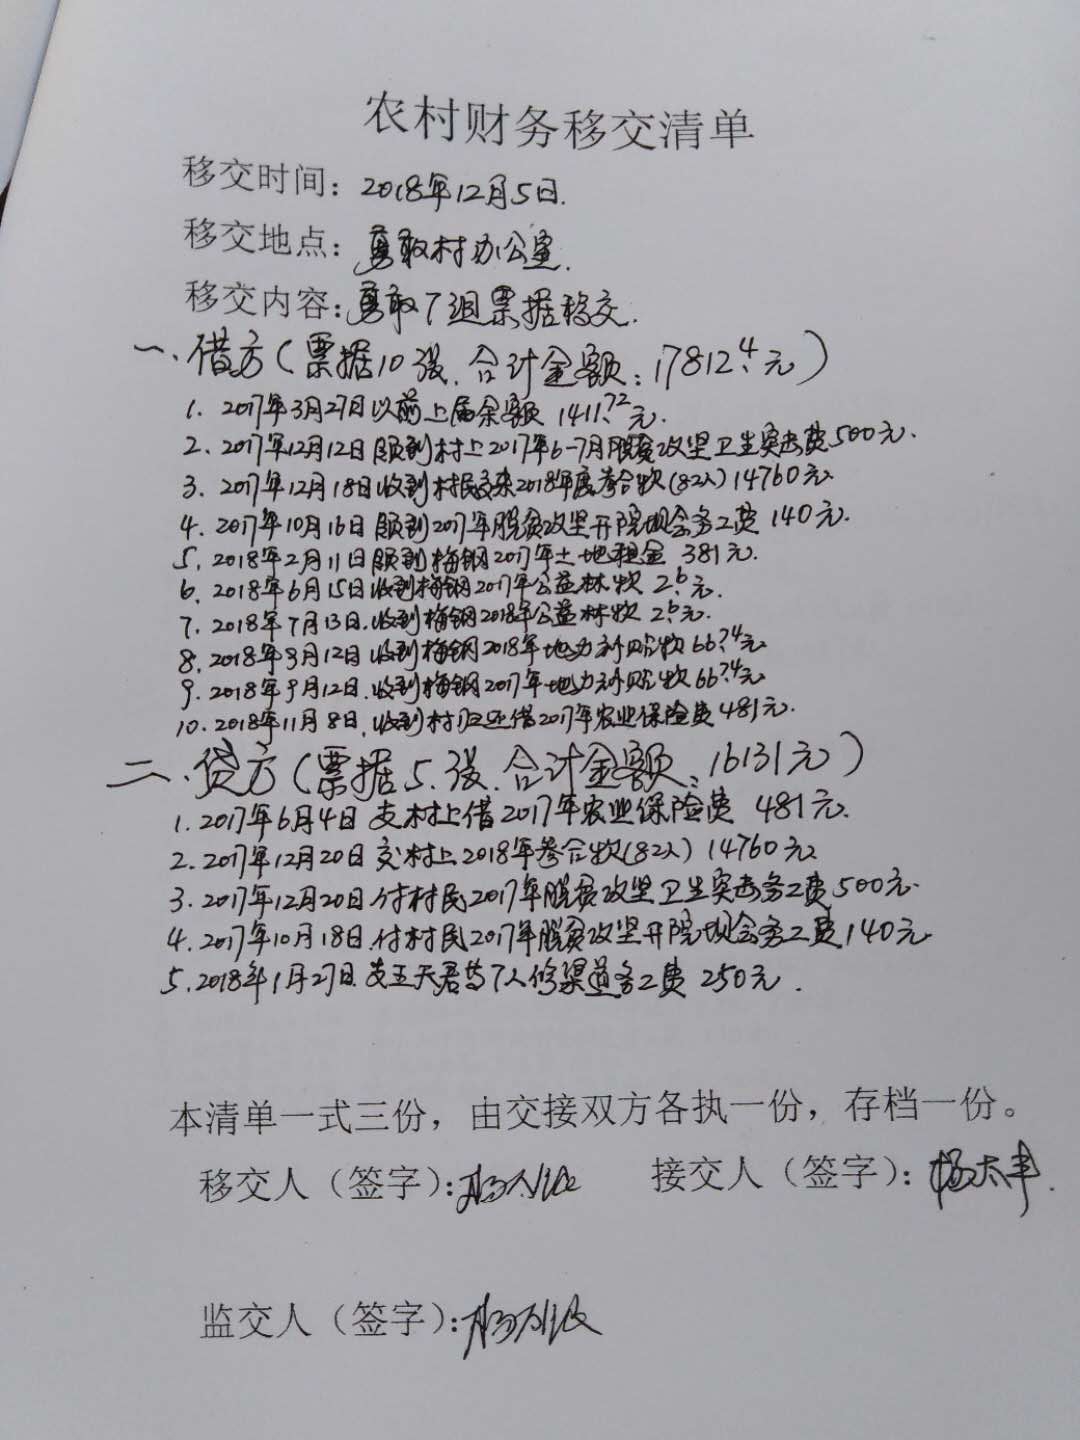 农村财务移交清单
移交时间：2018年12月5日.
移交地点：勇敢村办公室.
移交内容：勇敢7组票据移交.
一、借方（票据10张.合计金额：17812.4元）
1. 2017年3月27日以前上届余额 1411.72元.
2. 2017年12月12日领到村上2017年6-7月脱贫攻坚卫生突击费500元.
3. 2017年12月18日收到村民交来2018年度参合款(82人)14760元
4. 2017年10月16日领到2017年脱贫攻坚开院坝会务工费 140元.
5. 2018年2月11日领到梅钢2017年土地租金 381元.
6. 2018年6月15日收到梅钢2017年公益林款 2.6元.
7. 2018年7月13日.收到梅钢2018年公益林款 2.6元.
8. 2018年9月12日收到梅钢2018年地力补贴款66.74元
9. 2018年9月12日.收到梅钢2017年地力补贴款66.74元
10. 2018年11月8日,收到村归还借2017年农业保险费481元.
二、贷方（票据5.张.合计金额：16131元）
1. 2017年6月4日 支村上借2017年农业保险费 481元.
2. 2017年12月20日交村上2018年参合款(82人)14760元
3. 2017年12月20日付村民2017年脱贫攻坚卫生突击务工费500元.
4. 2017年10月18日.付村民2017年脱贫攻坚开院坝会务工费140元
5. 2018年1月27日.支王天君等7人修渠道务工费 250元.
本清单一式三份，由交接双方各执一份，存档一份。
移交人（签字）： 接交人（签字）：杨太丰.
监交人（签字）：